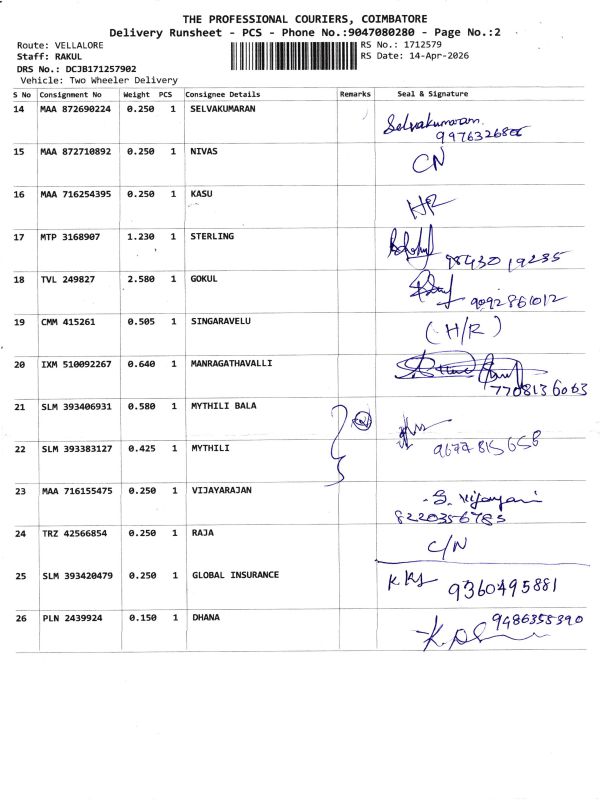 THE PROFESSIONAL COURIERS, COIMBATORE
Delivery Runsheet - PCS - Phone No.:9047080280 - Page No.:2
Route: VELLALORE
RS No.: 1712579
Staff: RAKUL
RS Date: 14-Apr-2026
DRS No.: DCJB171257902
Vehicle: Two Wheeler Delivery
S No Consignment No Weight PCS Consignee Details Remarks Seal & Signature
14 MAA 872690224 0.250 1 SELVAKUMARAN Selvakumaran
15 MAA 872710892 0.250 1 NIVAS CN
16 MAA 716254395 0.250 1 KASU H/R
17 MTP 3168907 1.230 1 STERLING 9843019235
18 TVL 249827 2.580 1 GOKUL 9092861012
19 CMM 415261 0.505 1 SINGARAVELU (H/R)
20 IXM 510092267 0.640 1 MANRAGATHAVALLI
7708136063
21 SLM 393406931 0.580 1 MYTHILI BALA
22 SLM 393383127 0.425 1 MYTHILI 9677815658
23 MAA 716155475 0.250 1 VIJAYARAJAN
8220356785
24 TRZ 42566854 0.250 1 RAJA C/N
25 SLM 393420479 0.250 1 GLOBAL INSURANCE 9360495881
26 PLN 2439924 0.150 1 DHANA 9486355390